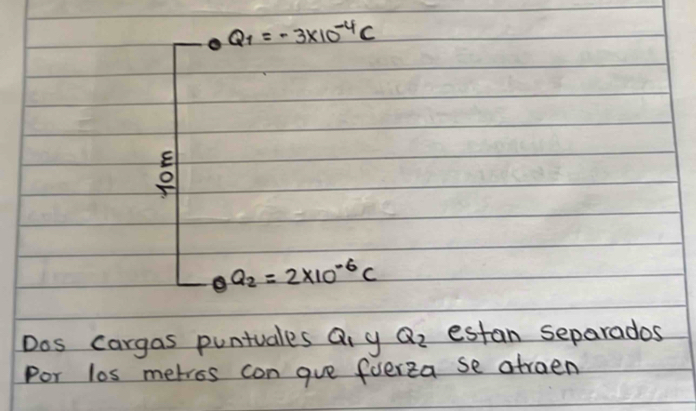 Q1 = - 3x10⁻⁴C
10m
Q2 = 2x10⁻⁶C
Dos cargas puntuales Q1 y Q2 estan separados
Por los metros con que fuerza se atraen